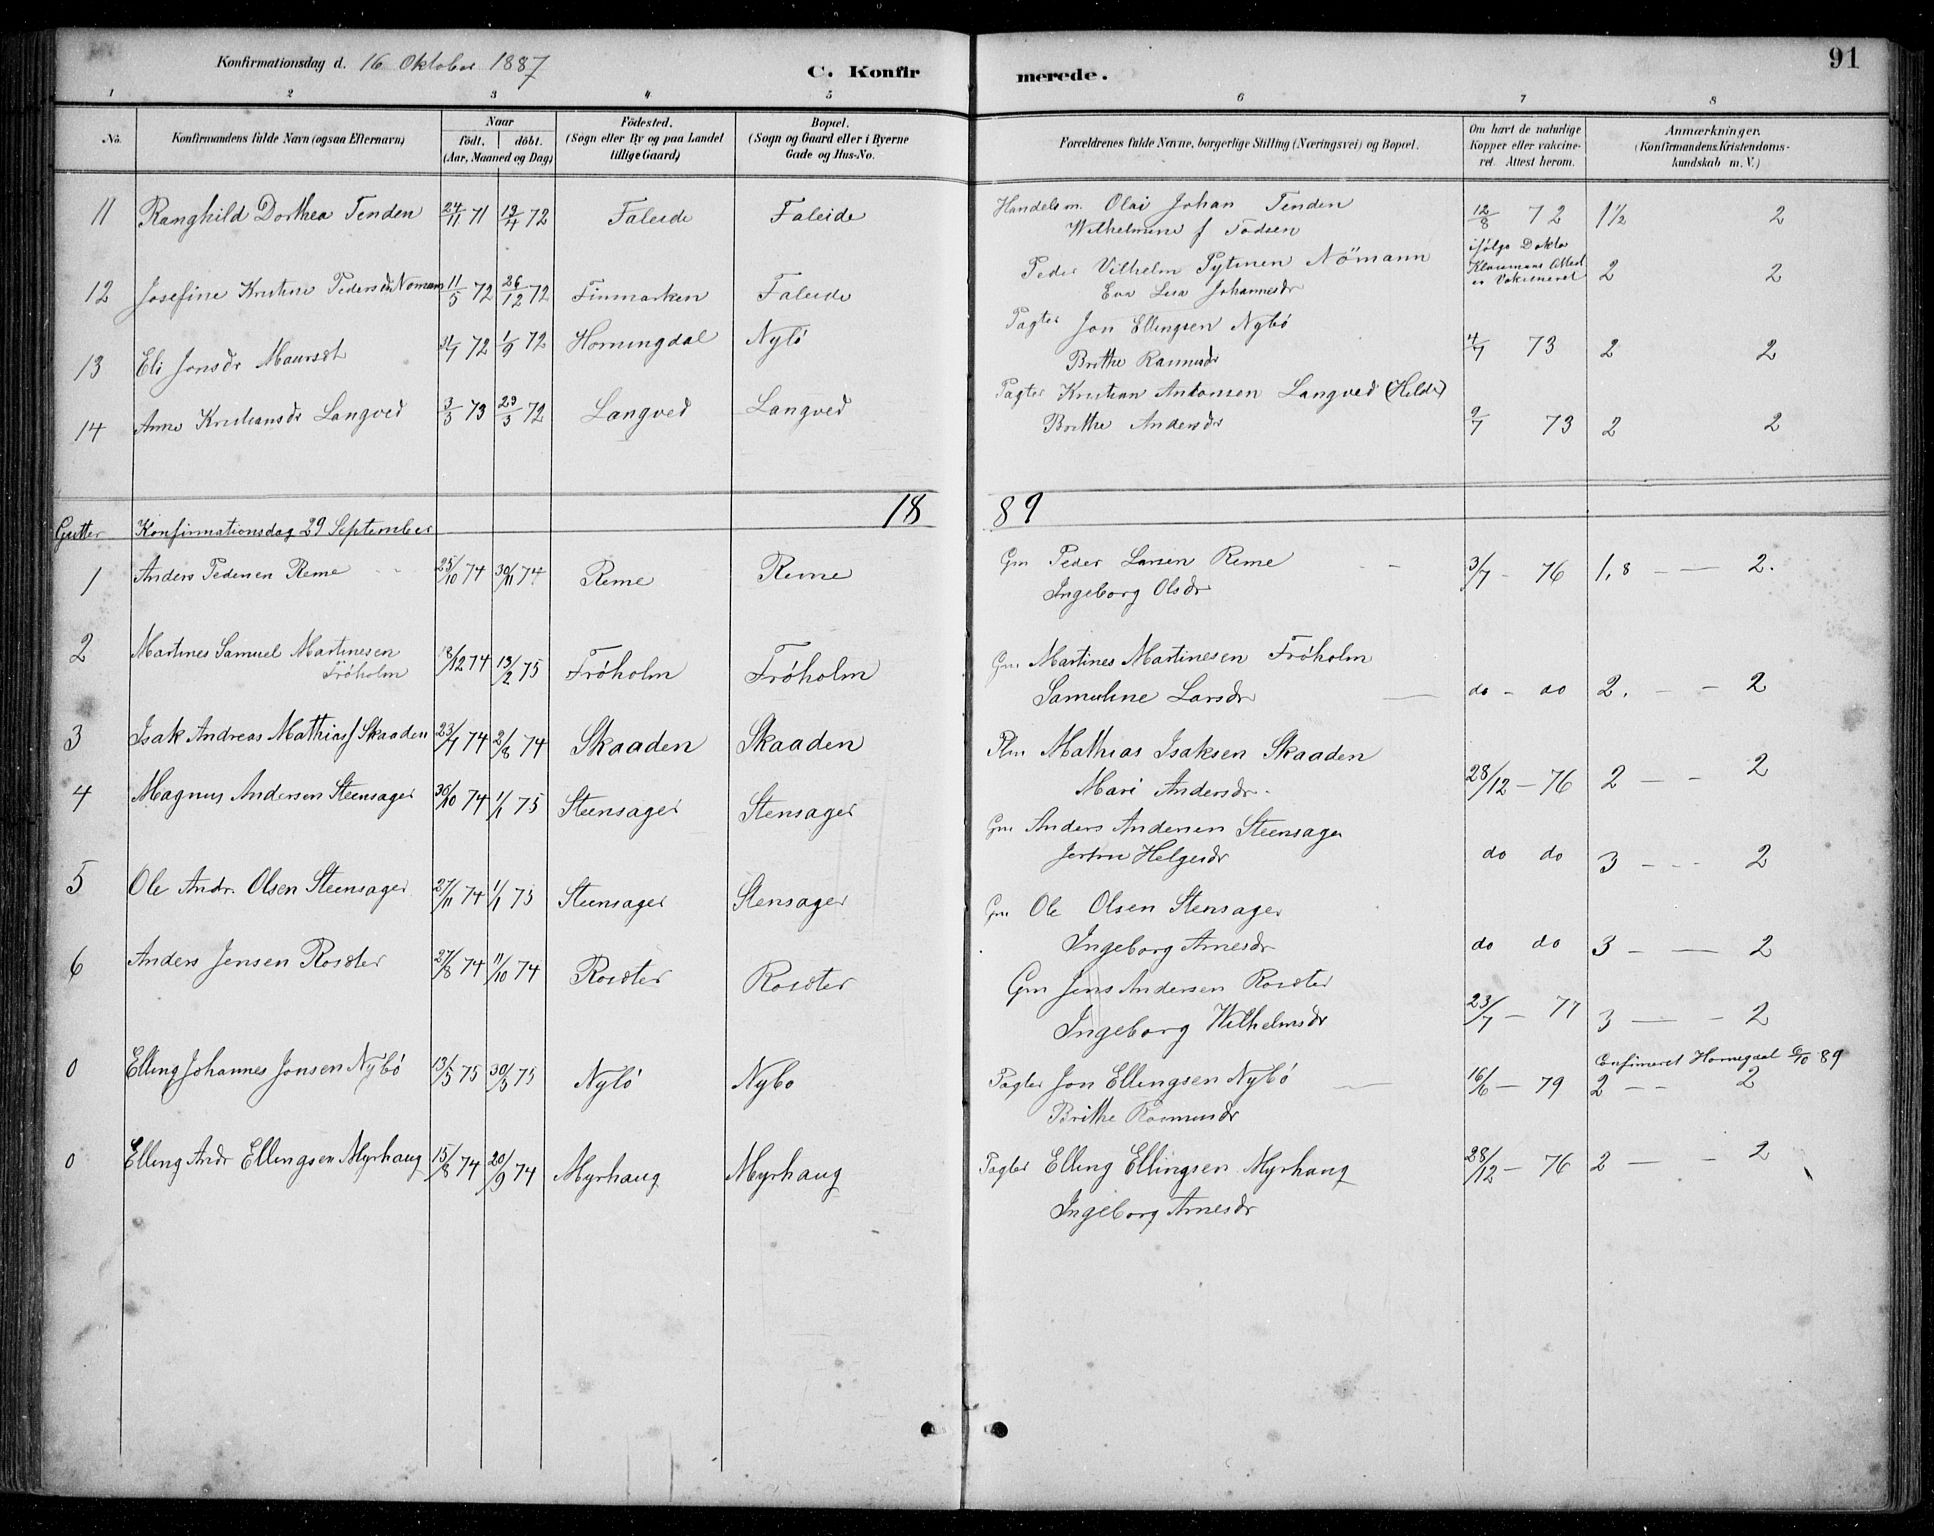 91
Konfirmationsdag d. 16 Oktober 1887
C. Konfirmerede.
1 2 3 4 5 6 7 8
No. Konfirmandens fulde Navn (ogsaa Efternavn) Naar født. døbt. (Aar, Maaned og Dag) Födested. (Sogn eller By og paa Landet tillige Gaard) Bopæl. (Sogn og Gaard eller i Byerne Gade og Hus-No. Forældrenes fulde Navne, borgerlige Stilling (Næringsvei) og Bopæl. Om havt de naturlige Kopper eller vakcineret. Attest herom. Anmærkninger. (Konfirmandens Kristendomskundskab m. V.)
11 Ranghild Dorthea Tenden 24/11 71 19/4 72 Faleide Faleide Handelsm. Olai Johan Tenden 12/8 72 1½ 2
Wilhelmine f Todsen
12 Josefine Kristine Pedersdr Nomann 11/5 72 26/12 72 Finmarken Faleide Peder Vilhelm Nömann ifølge Doktor Attest er Vakcineret 2 2
Eva Lisa Johannesdr
13 Eli Jonsdr Maurset 72 1/9 72 Horningdal Nybö Pagter Jon Ellingsen Nybö 4/7 73 2 2
Brithe Rasmusdr
14 Anne Kristiansdr Langved 3/3 73 29/3 72 Langved Langved Pagter Kristian Antonsen Langved (Hilde) 9/7 73 2 2
Brithe Andersdr
1889
Gutter Konfirmationsdag 29 September
1 Anders Pedersen Reme 25/10 74 30/11 74 Reme Reme Gm Peder Larsen Reme 3/7 - 76 1,8 — — 2.
Ingeborg Olsdr
2 Martines Samuel Martinesen Frøholm 8/12 74 13/2 75 Frøholm Frøholm Gm Martines Martinesen Frøholm do - do 2. - - 2
Samuline Larsdr
3 Isak Andreas Mathiasf Skaaden 23/7 74 2/8 74 Skaaden Skaaden Plm Mathias Isaksen Skaaden 28/12 - 76 2 — - 2
Mari Andersdr
4 Magnus Andersen Steensager 30/10 74 1/1 75 Steensager Stensager Gm Anders Andersen Steensager do do 3 - - - 2
Helgesdr
5 Ole Andr. Olsen Steensager 27/11 74 1/1 75 Steensager Stensager Gm Ole Olsen Stensager do do 3 - — 2
Ingeborg Arnesdr
6 Anders Jensen Rosæter 27/8 74 11/10 74 Rosæter Rosæter Gm Jens Andersen Rosæter 23/7 - 77 3 — - 2
Ingeborg Wilhelmsdr
0 Elling Johannes Jonsen Nybø 13/5 75 30/5 75 Nybø Nybo Pagter Jon Ellingsen Nybö 16/6 - 79 Confirmeret Hornegdal 6/10 89 2 - - 2
Brithe Rasmusdr
0 Elling Andr Ellingsen Myrhaug 15/8 74 20/9 74 Myrhaug Myrhaug Pagter Elling Ellingsen Myrhaug 28/12 - 76 2 — - 2
Ingeborg Arnesdr